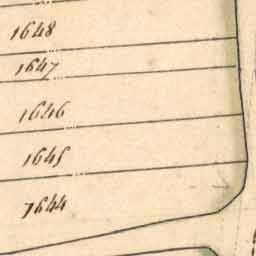 1648
1647
1646
1645
1644